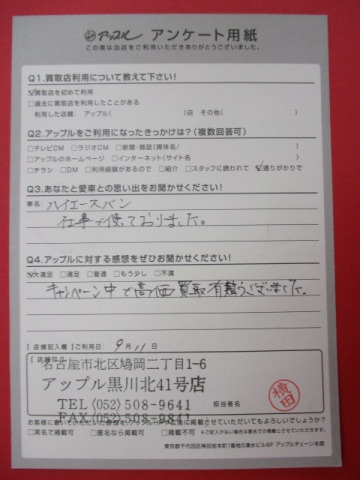 アップル アンケート用紙
この度は当店をご利用いただきありがとうございました。
Q1.買取店利用について教えて下さい!
☑買取店を初めて利用
□過去に買取店を利用したことがある
利用した店舗:アップル( )店 その他( )
Q2.アップルをご利用になったきっかけは?(複数回答可)
□テレビCM □ラジオCM □新聞・雑誌(媒体名/ )
□アップルのホームページ □インターネット(サイト名 )
□チラシ □DM □利用経験があるので □紹介 □スタッフに誘われて ☑通りがかりで
Q3.あなたと愛車との思い出をお聞かせください!
車名/ハイエースバン
仕事で使ておりました。
Q4.アップルに対する感想をぜひお聞かせください!
☑大満足 □満足 □普通 □もう少し □不満
キャンペーン中で高価買取有難うございました。
【店舗記入欄】ご利用日: 9月11日
名古屋市北区鳩岡二丁目1-6
アップル黒川北41号店
TEL(052)508-9641
担当者名
FAX(052)508-9841
横田
お客様に書いていただいた感想をアップルHP・店頭に掲載させていただいてもよろしいでしょうか?
□実名で掲載可 □匿名なら掲載可 □掲載不可 ※ご記入がない場合は匿名での掲載とさせていただきます。
東京都千代田区神田司本町1番地5清水ビル6F アップルチェーン本部